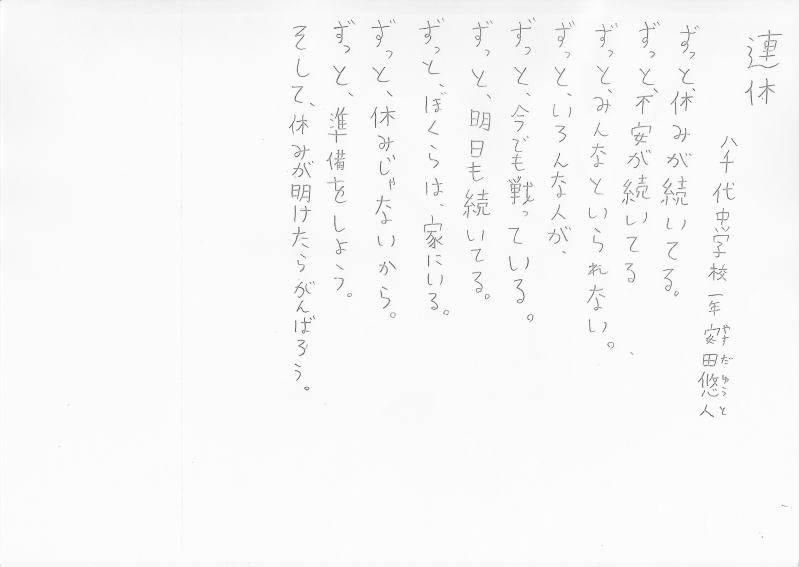 連休
八千代中学校一年 安田悠人
やすだゆうと
ずっと、休みが続いてる。
ずっと、不安が続いてる
ずっと、みんなといられない。
ずっと、いろんな人が、
ずっと、今でも戦っている。
ずっと、明日も続いてる。
ずっと、ぼくらは、家にいる。
ずっと、休みじゃないから。
ずっと、準備をしよう。
そして、休みが明けたらがんばろう。